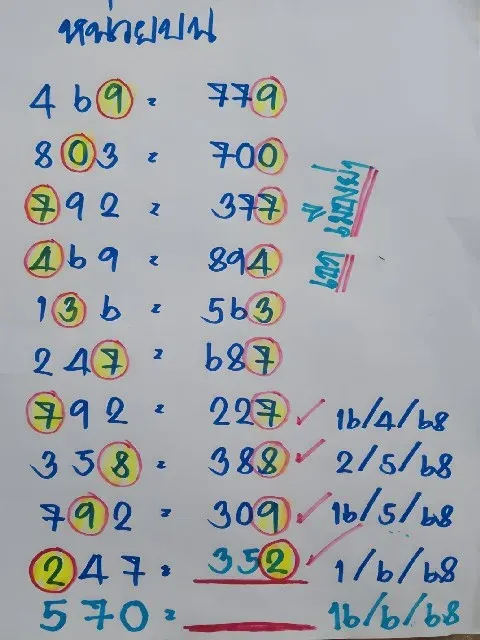 หน่วยบน
469 = 779
803 = 700
792 = 377
469 = 894
136 = 563
247 = 687
792 = 227 ✓ 16/4/68
358 = 388 ✓ 2/5/68
792 = 309 ✓ 16/5/68
247 = 352 ✓ 1/6/68
570 = 16/6/68